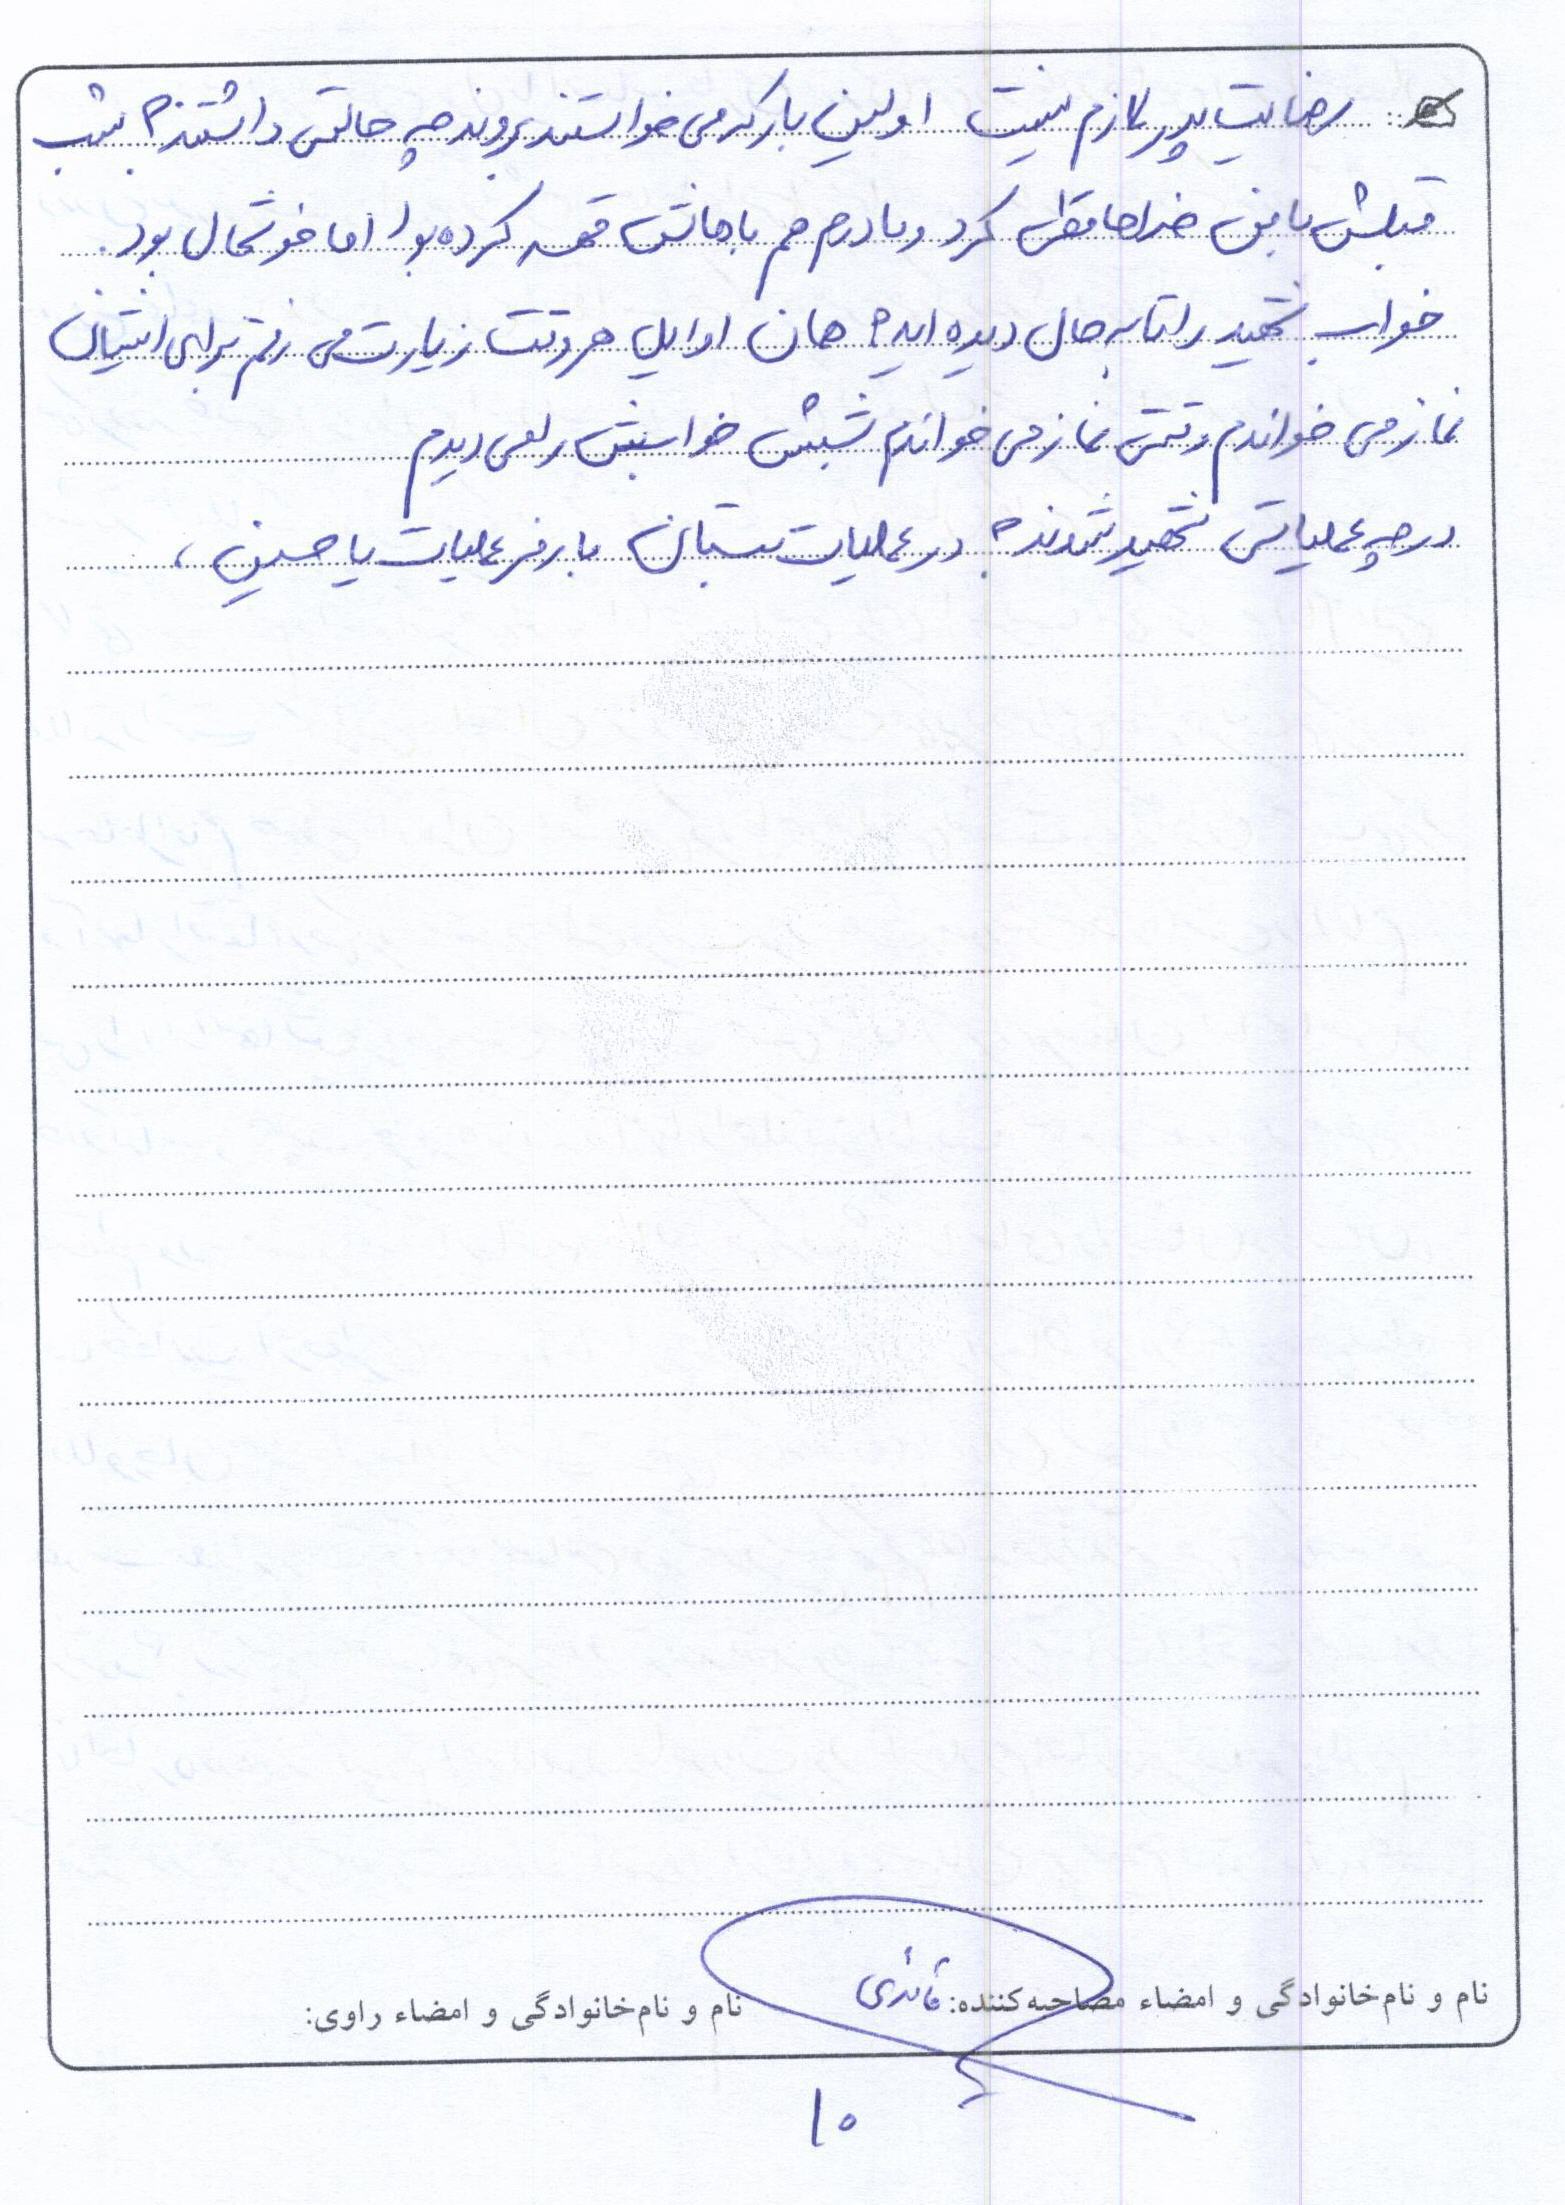 رضایت پدر لازم نیست اولین بار که می خواستند بروند چه حالتی داشتند؟ شب
قبلش با من خداحافظی کرد و مادرم هم باهاش قهر کرده بود اما خوشحال بود.
خواب شهید را تا به حال دیده اید؟ همان اوایل هر وقت زیارت می رفتم برای ایشان
نماز می خواندم وقتی نماز می خواندم شبش خوابش را می دیدم
در چه عملیاتی شهید شدند؟ در عملیات بستان با رمز عملیات یا حسین،
نام و نام‌خانوادگی و امضاء مصاحبه‌کننده: قائدی
نام و نام‌خانوادگی و امضاء راوی:
۱۰